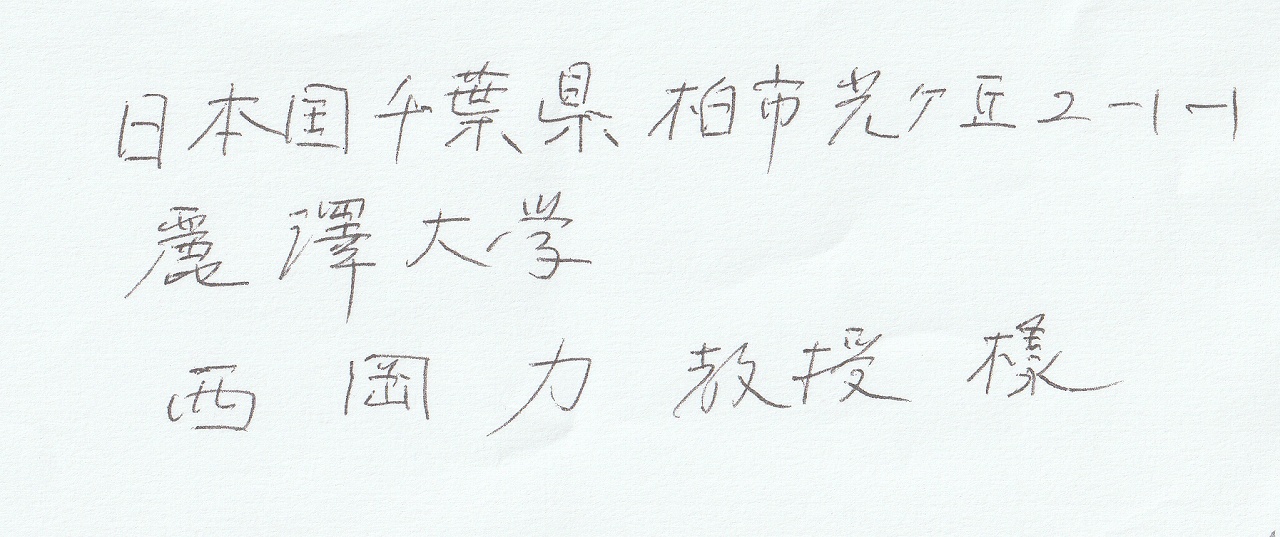 日本国千葉県柏市光ケ丘2-1-1
麗澤大学
西岡力 教授 様